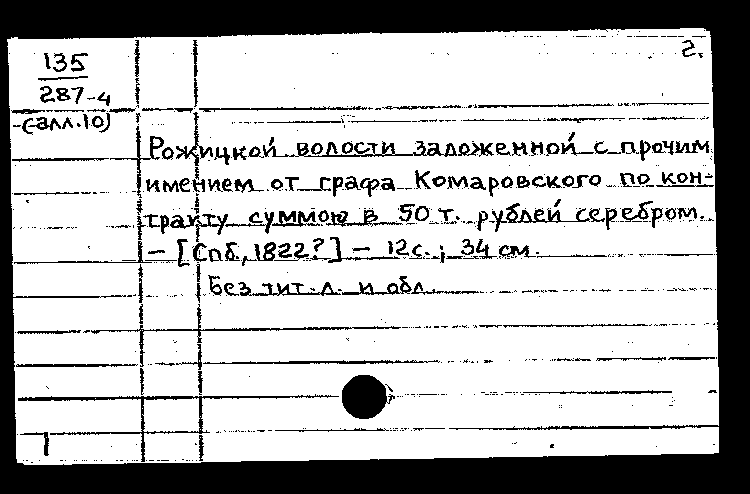 2.
135
287-4
(-алл.10)
Рожицкой волости заложенной с прочим
имением от графа Комаровского по кон-
тракту суммою в 50 т. рублей серебром.
– [Спб., 1822?] – 12 с.; 34 см.
Без тит. л. и обл.
1